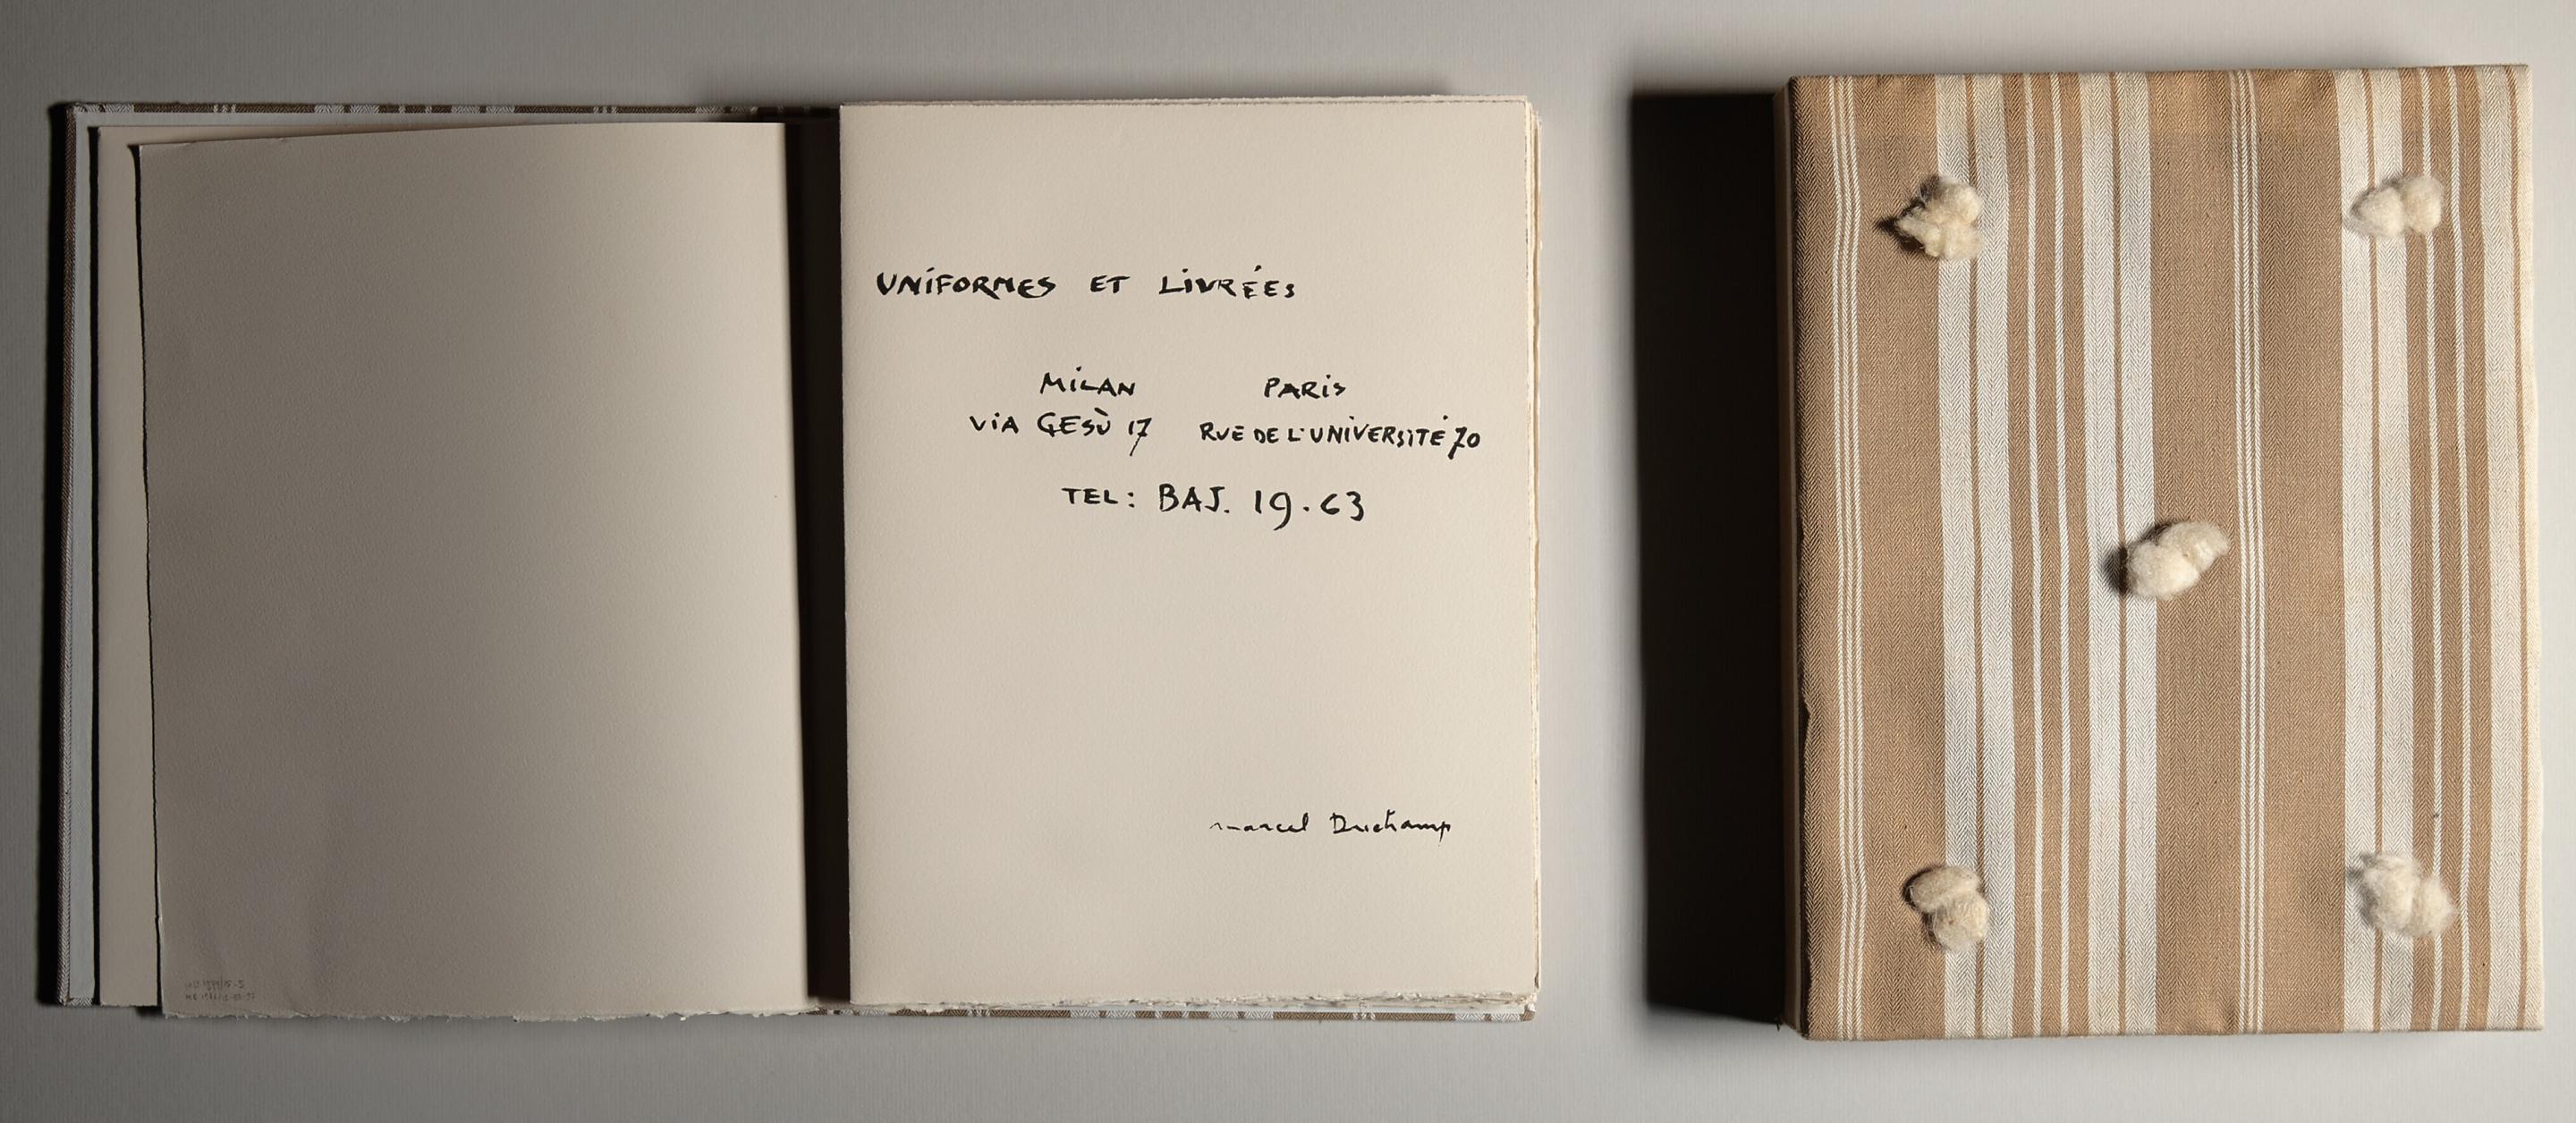 UNIFORMES ET LIVRÉES
MILAN PARIS
VIA GESÙ 17 RUE DE L'UNIVERSITÉ 70
TEL: BAJ. 19.63
marcel Duchamp